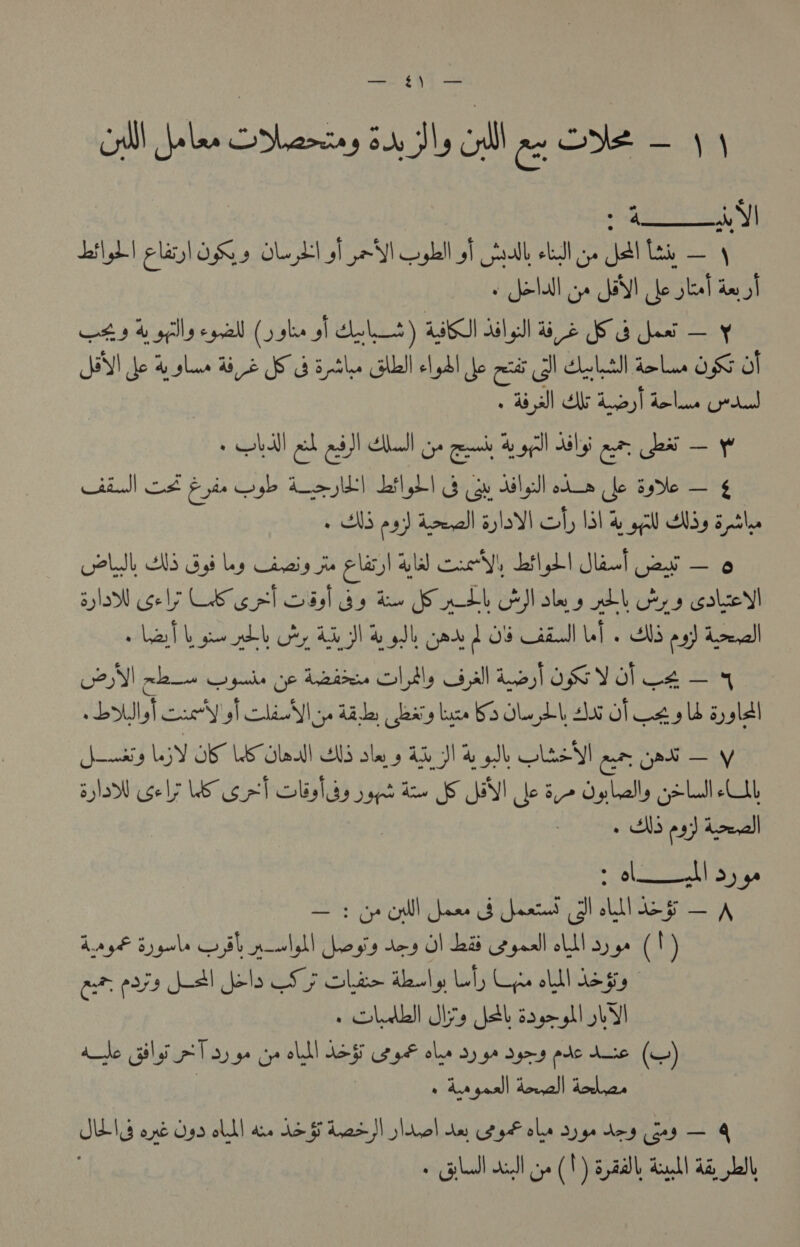 — ٤١ —
١١ – محلات بيع اللبن والزبدة ومتحصلات معامل اللبن
الأبنيـــــــة :
١ — ينشأ المحل من البناء بالدبش أو الطوب الأحمر أو الخرسان ويكون ارتفاع الحوائط
أربعة أمتار على الأقل من الداخل .
٢ — تعمل فى كل غرفة النوافذ الكافية (شبابيك أو مناور) للضوء والتهوية ويجب
أن تكون مساحة الشبابيك التى تفتح على الهواء الطلق مباشرة فى كل غرفة مساوية على الأقل
لسدس مساحة أرضية تلك الغرفة .
٣ — تغطى جميع نوافذ التهوية بنسيج من السلك الرفيع لمنع الذباب .
٤ — علاوة على هـذه النوافذ يبنى فى الحوائط الخارجيـة طوب مفرغ تحت السقف
مباشرة وذلك للتهوية اذا رأت الادارة الصحية لزوم ذلك .
٥ — تبيض أسفال الحوائط بالأسمنت لغاية ارتفاع متر ونصف وما فوق ذلك بالبياض
الاعتيادى ويرش بالجير ويعاد الرش بالجـير كل سنة وفى أوقات أخرى كلمـا تراءى للادارة
الصحية لزوم ذلك . أما السقف فان لم يدهن بالبوية الزيتية يرش بالجير سنويا أيضا .
٦ — يجب أن لا تكون أرضية الغرف والممرات منخفضة عن منسوب سـطح الأرض
المجاورة لها ويجب أن تدك بالخرسان دكا متينا وتغطى بطبقة من الأسفلت أو لأسمنت أوالبلاط .
٧ — تدهن جميع الأخشاب بالبوية الزيتية ويعاد ذلك الدهان كلما كان لازما وتغسـل
بالمـاء الساخن والصابون مرة على الأقل كل ستة شهور وفى أوقات أخرى كلما تراءى للادارة
الصحية لزوم ذلك .
مورد الميـــــاه :
٨ — تؤخذ المياه التى تستعمل فى معمل اللبن من : —
(أ) مورد المياه العمومى فقط ان وجد وتوصل المواسـير بأقرب ماسورة عمومية
وتؤخذ المياه منهـا رأسا بواسطة حنفيات تركب داخل المحـل وتردم جميع
الآبار الموجودة بالمحل وتزال الطلمبات .
(ب) عنـد عدم وجود مورد مياه عمومى تؤخذ المياه من مورد آخر توافق عليـه
مصلحة الصحة العمومية .
٩ — ومتى وجد مورد مياه عمومى بعد اصدار الرخصة تؤخذ منه المياه دون غيره فى الحال
بالطريقة المبينة بالفقرة (أ) من البند السابق .